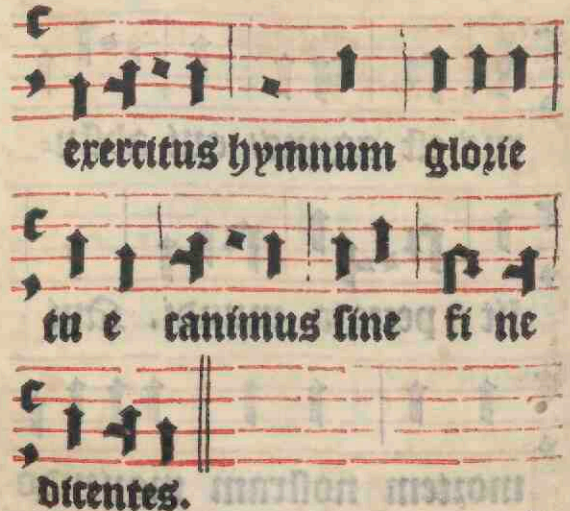 exercitus hymnum glorie
tu e canimus sine fi ne
dicentes.